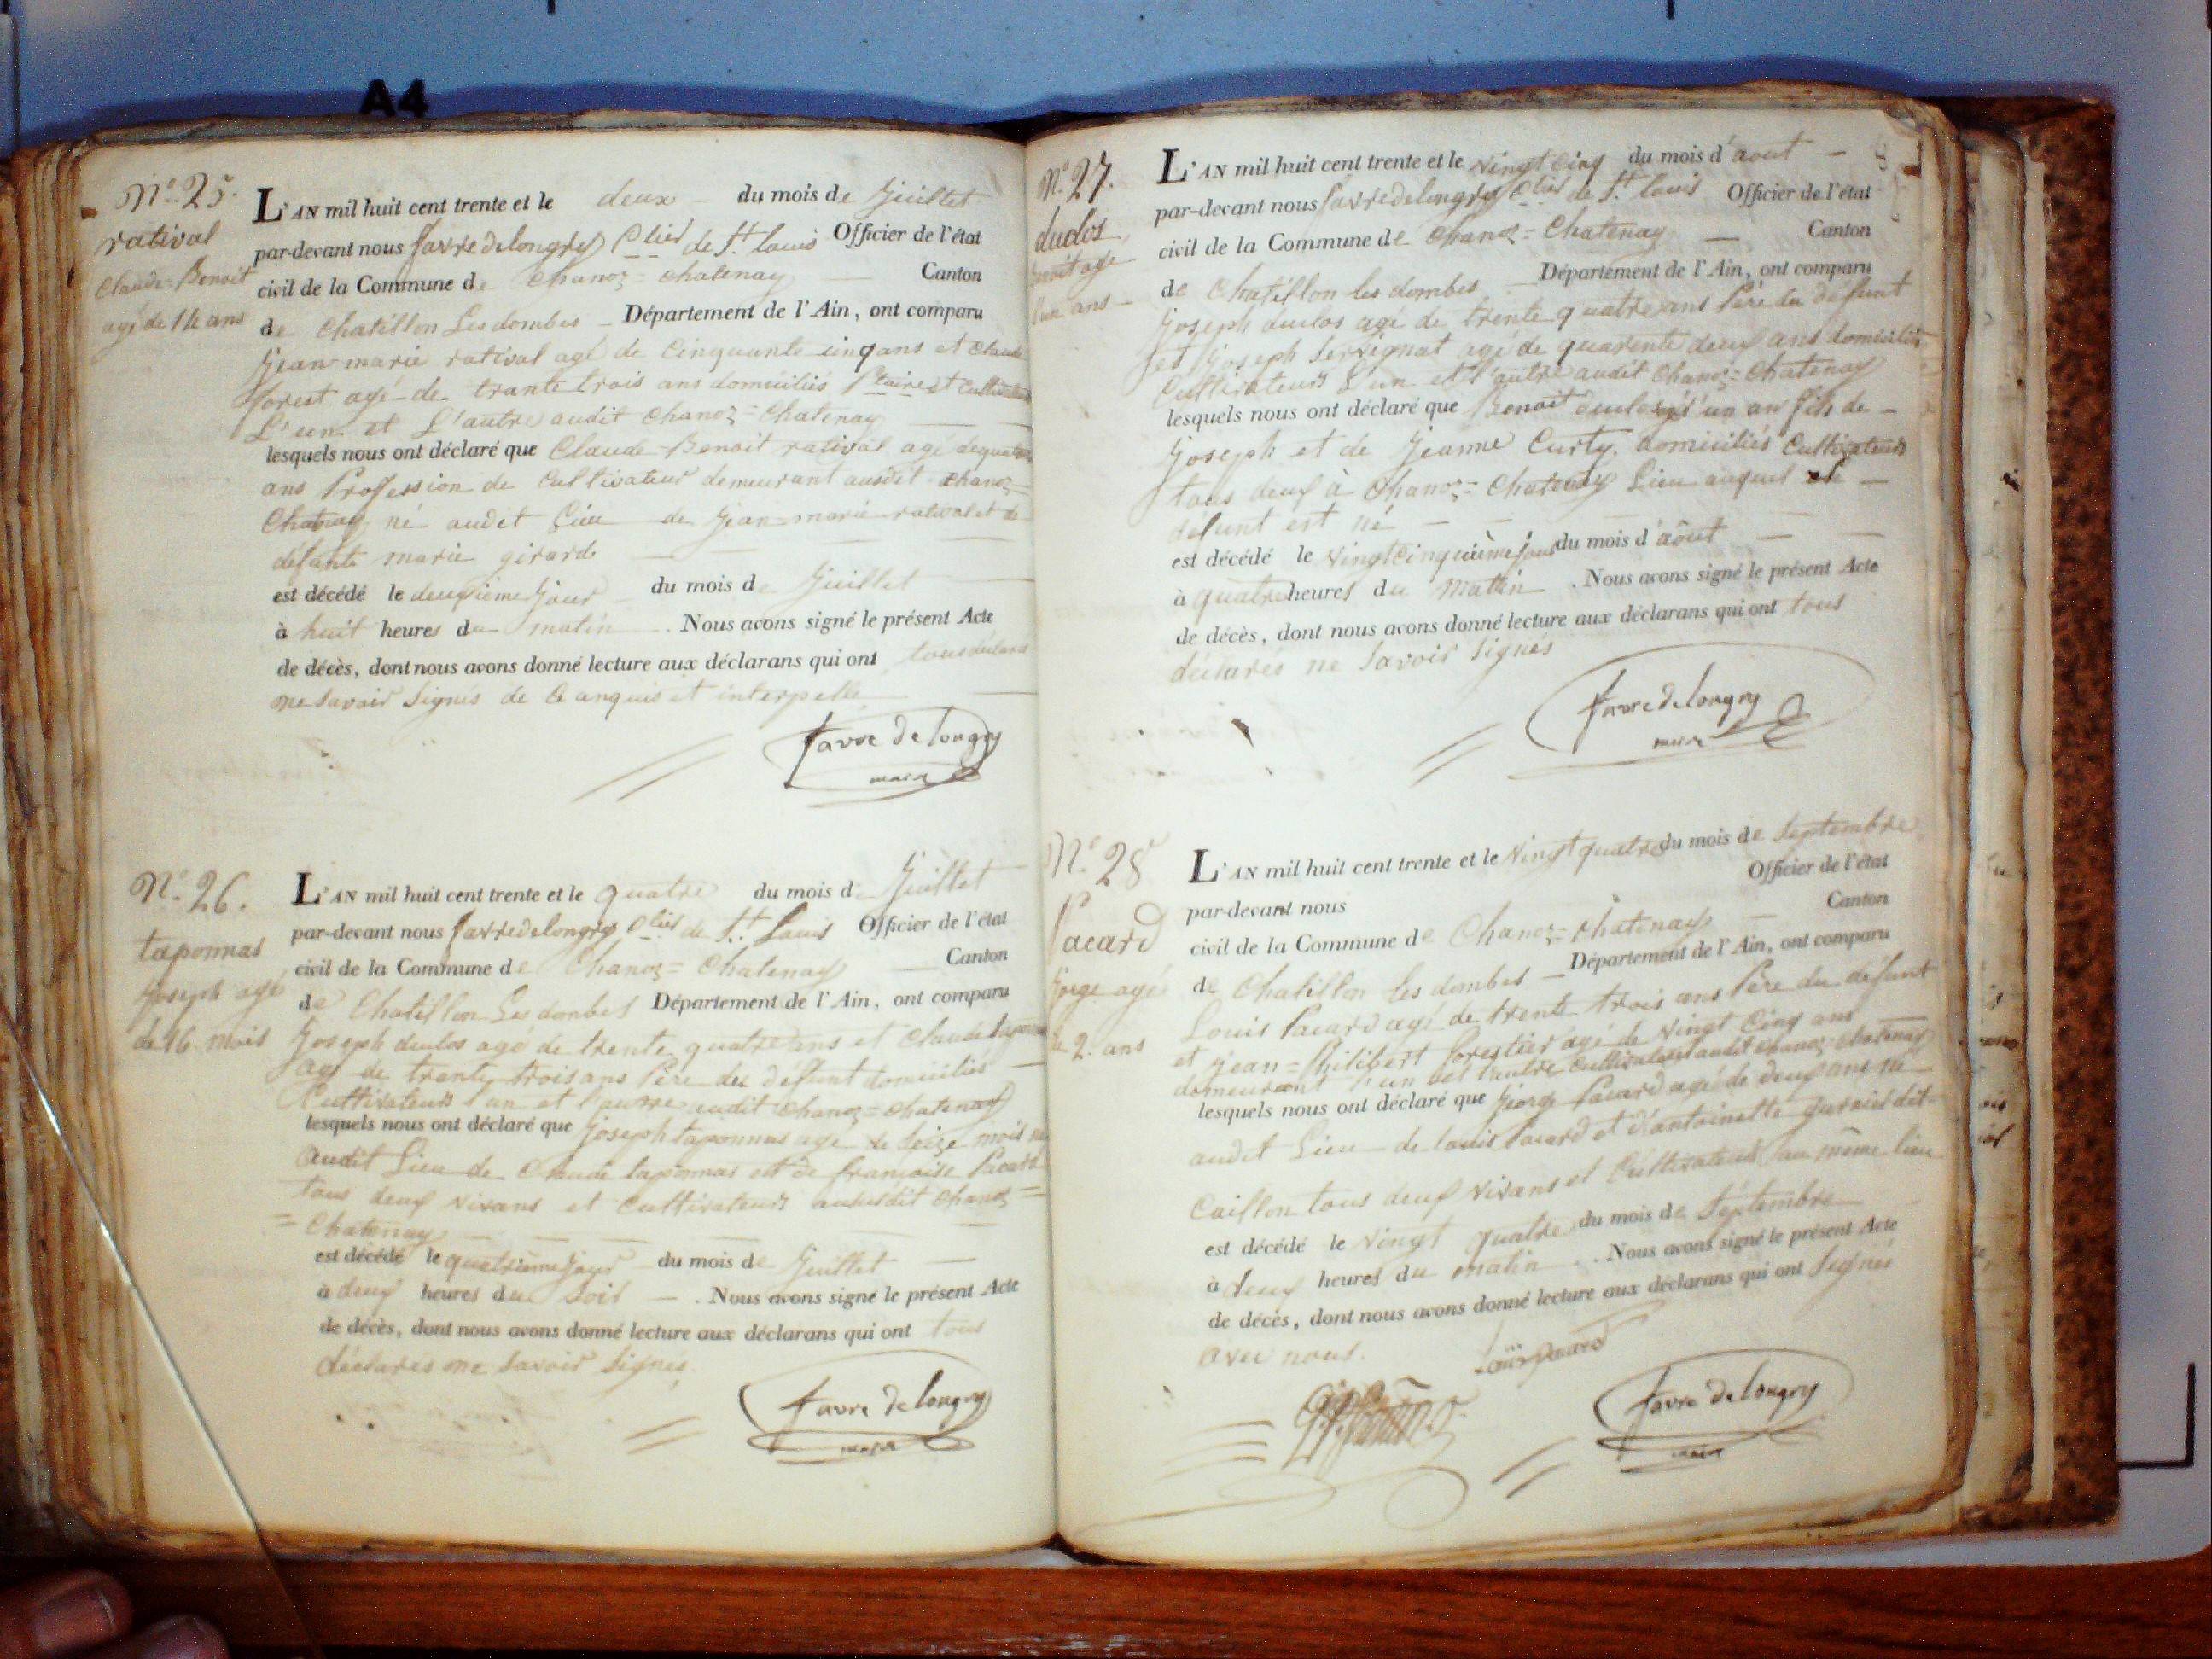 A4
N.° 25.
ratival
Claude=Benoit
agé de 14 ans
L'AN mil huit cent trente et le deux du mois de Juillet
par-devant nous favre de longry Clier de St. louis Officier de l'état
civil de la Commune de Chanoz=Chatenay Canton
de Chatillon Les dombes Département de l'Ain, ont comparu
Jean-marie ratival agé de Cinquante cinq ans et Claude
forest agé de trante trois ans domiciliés Ptaire et Cultivateur
L'un et L'autre audit Chanoz=Chatenay
lesquels nous ont déclaré que Claude-Benoit ratival agé de quatorze
ans Profession de Cultivateur demeurant ausdit Chanoz=
Chatenay né audit Lieu de Jean-marie ratival et de
défunte marie girarde
est décédé le deuxieme Jour du mois de Juillet
à huit heures du matin. Nous avons signé le présent Acte
de décès, dont nous avons donné lecture aux déclarans qui ont tous déclarés
ne Savoir Signés de Ce anquis et interpelle
favre de longry
maire
N.° 26.
taponnas
Joseph agé
de 16 mois
L'AN mil huit cent trente et le quatre du mois de Juillet
par-devant nous favre de longry Clier de St. Louis Officier de l'état
civil de la Commune de Chanoz=Chatenay Canton
de Chatillon Les dombes Département de l'Ain, ont comparu
Joseph duclos agé de trente quatre ans et Claude taponnas
agé de trente trois ans Père du défunt domiciliés
Cultivateurs l'un et l'autre audit Chanoz=Chatenay
lesquels nous ont déclaré que Joseph taponnas agé de Seize mois né
audit Lieu de Claude taponnas et de françoise Pacard
tous deux vivans et Cultivateurs audit Chanoz=
=Chatenay
est décédé le quatrieme Jour du mois de Juillet
à deux heures du Soir. Nous avons signé le présent Acte
de décès, dont nous avons donné lecture aux déclarans qui ont tous
déclarés ne Savoir Signés
favre de longry
maire
N.° 27.
duclos
Benoit agé
d'un ans
L'AN mil huit cent trente et le Vingt Cinq du mois d'aout
par-devant nous favre de longry Clier de St. louis Officier de l'état
civil de la Commune de Chanoz=Chatenay Canton
de Chatillon les dombes Département de l'Ain, ont comparu
Joseph duclos agé de trente quatre ans Père du défunt
et Joseph Servignat agé de quarente deux ans domiciliés
Cultivateurs L'un et l'autre audit Chanoz=Chatenay
lesquels nous ont déclaré que Benoit duclos agé d'un an fils de
Joseph et de Jeanne Curty, domiciliés Cultivateurs
tous deux à Chanoz=Chatenay Lieu auquel le
défunt est né
est décédé le Vingt Cinquième Jour du mois d'aôut
à quatre heures du Mattin. Nous avons signé le présent Acte
de décès, dont nous avons donné lecture aux déclarans qui ont tous
déclarés ne Savoir Signés
favre de longry
maire
N.° 28
Pacard
Gorge agé
de 2. ans
L'AN mil huit cent trente et le Vingt quatre du mois de Septembre
par-devant nous Officier de l'état
civil de la Commune de Chanoz=Chatenay Canton
de Chatillon les dombes Département de l'Ain, ont comparu
Louis Pacard agé de trente trois ans Père du défunt
et Jean=Philibert forestier agé de Vingt Cinq ans
demeurant l'un et l'autre Cultivateurs audit Chanoz=Chatenay
lesquels nous ont déclaré que Giorge Pacard agé de deux ans né
audit Lieu de louis Pacard et d'antoinette dit
Caillon tous deux vivans et Cultivateurs au même lieu
est décédé le Vingt quatre du mois de Septembre
à deux heures du matin. Nous avons signé le présent Acte
de décès, dont nous avons donné lecture aux déclarans qui ont Signés
avec nous.
Louis Pacard
favre de longry
maire